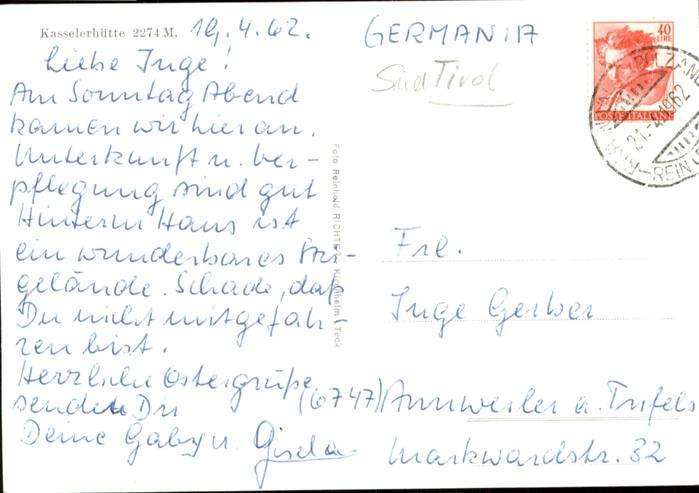 Kasselerhütte 2274 M.
19.4.62.
Liebe Inge!
Am Sonntag Abend
kamen wir hier an.
Unterkunft u. Ver-
pflegung sind gut
Hinterm Haus ist
ein wunderbares Ski-
gelände. Schade, daß
Du nicht mitgefah
ren bist.
Herzliche Ostergrüße
senden Dir
Deine Gaby u. Gisela
Foto Reinhold RICHTER Kirchheim/Teck
GERMANIA
SüdTirol
40
LIRE
POSTE ITALIANE
BOLZANO
21.-4.1962
RIVA
REIN
Frl.
Inge Gerber
(6747) Annweiler a. Trifels
Markwardstr. 32